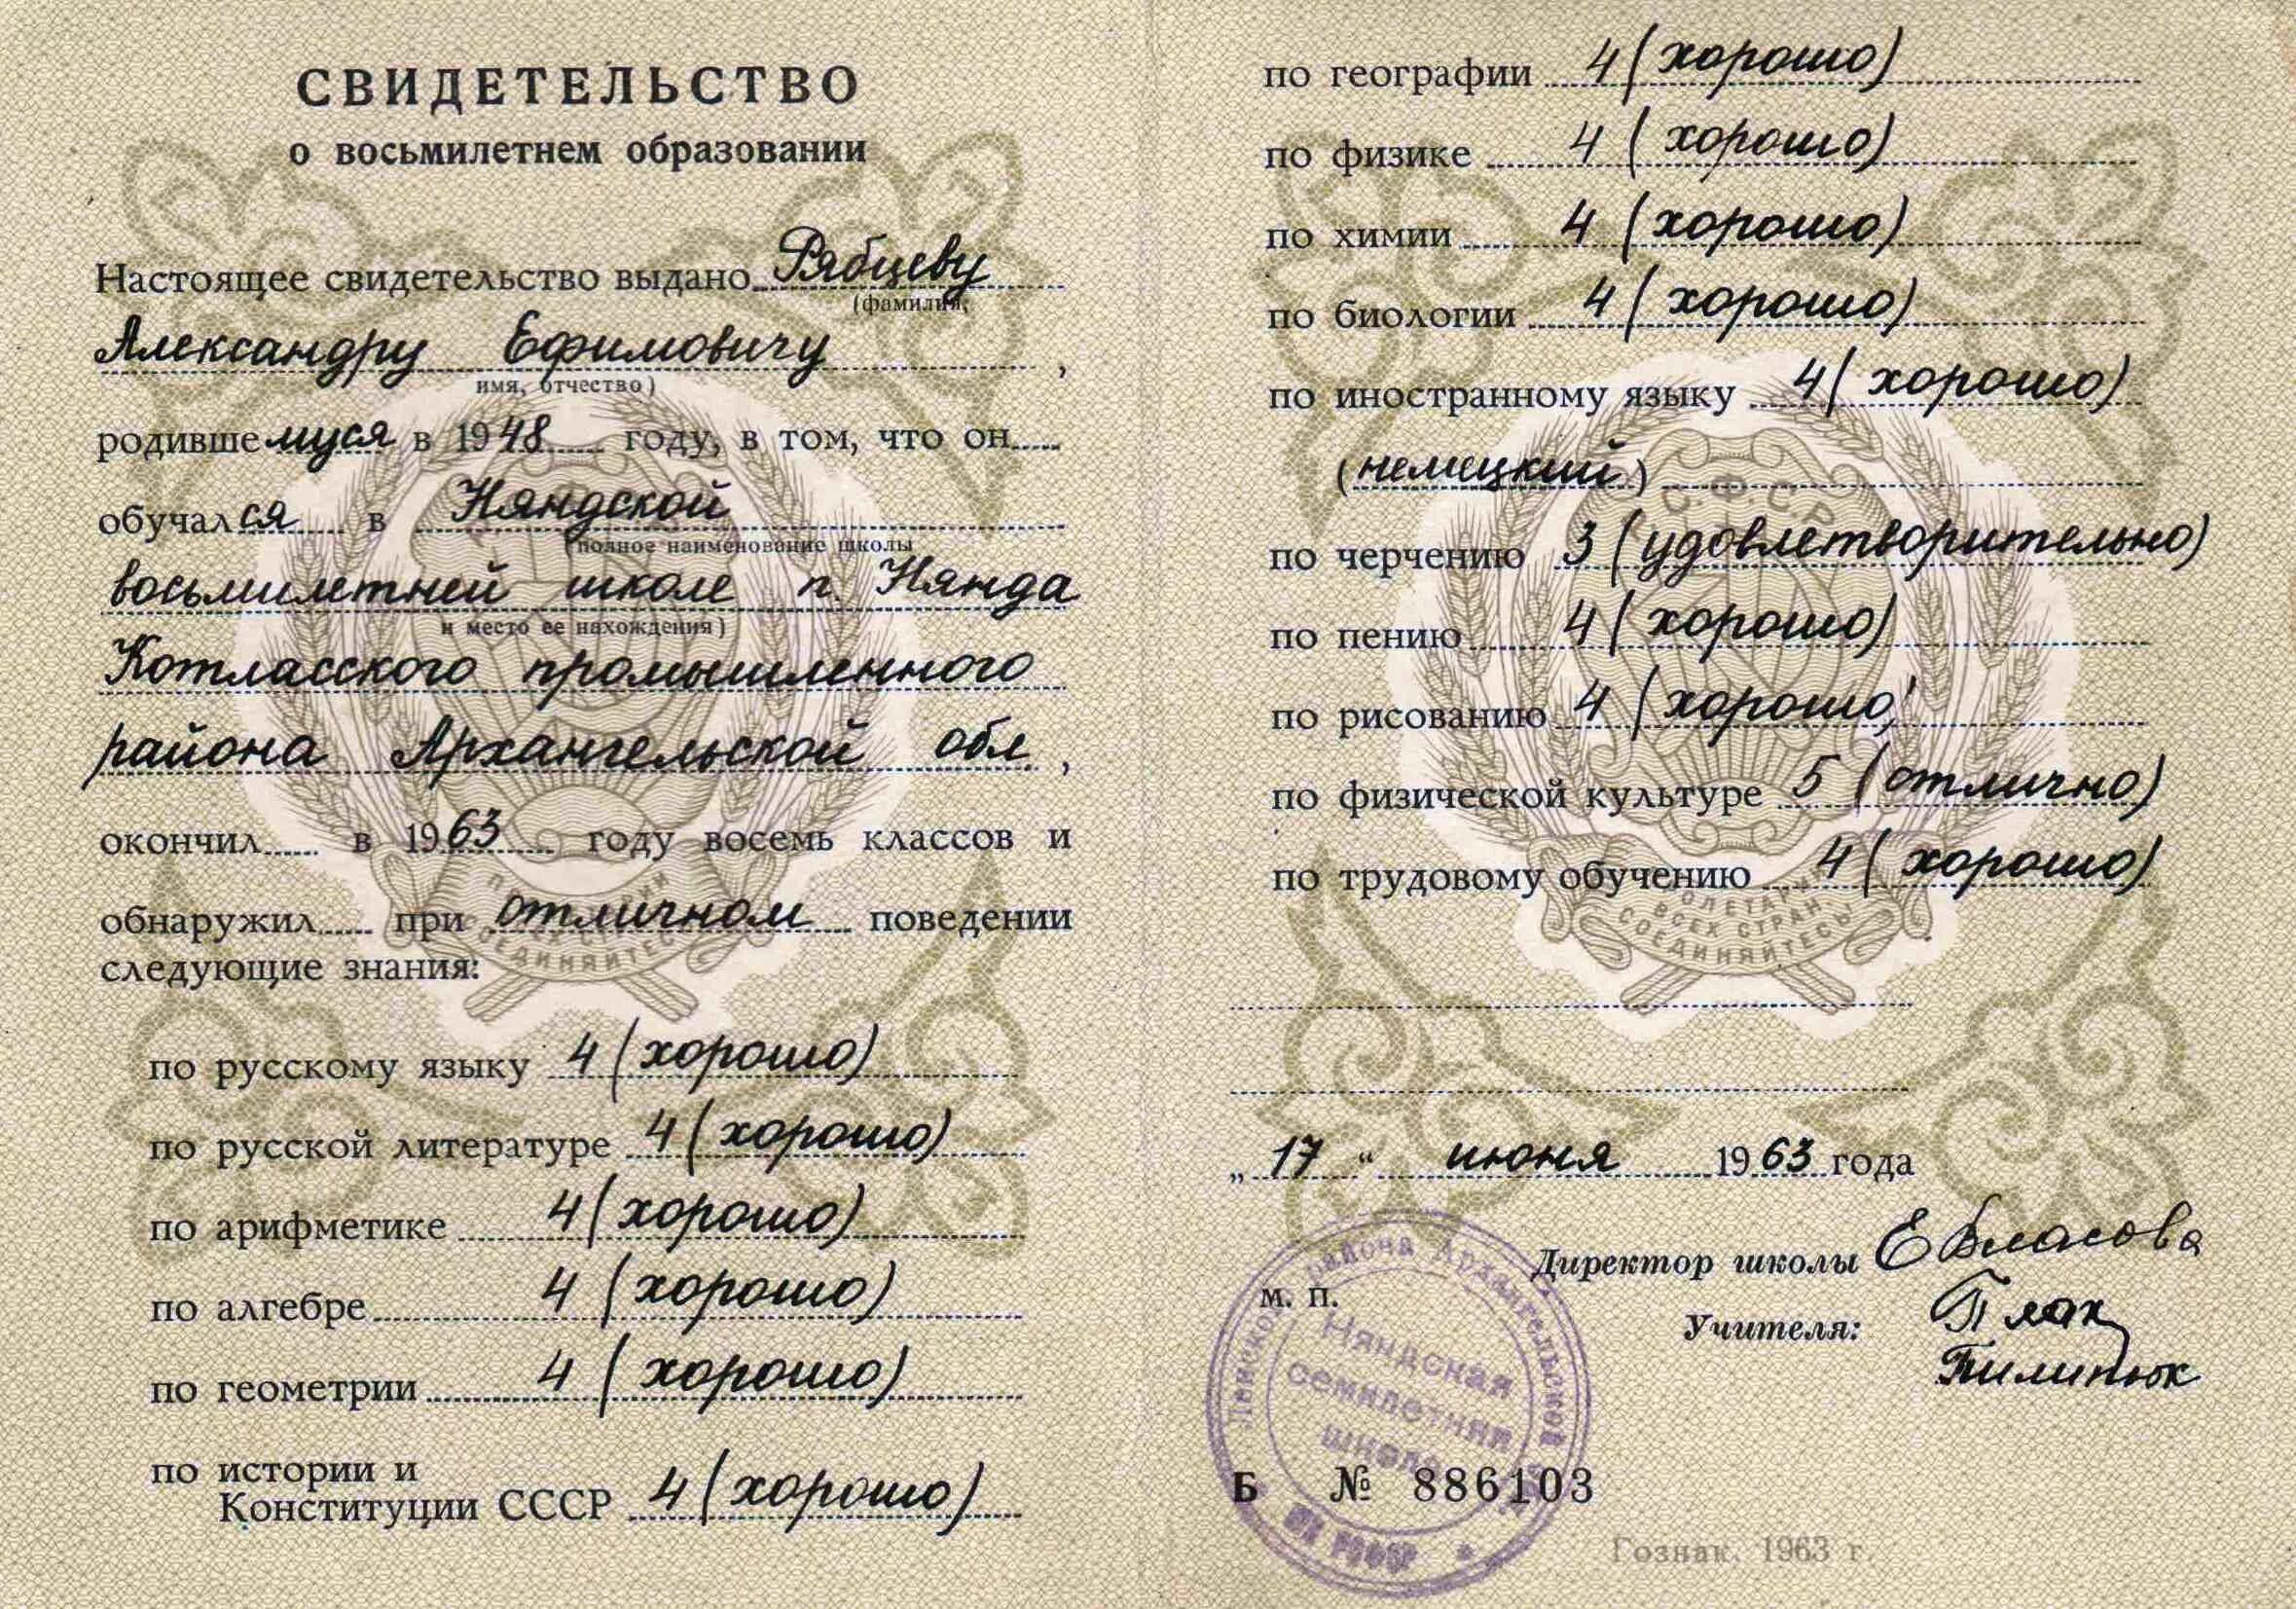 СВИДЕТЕЛЬСТВО
о восьмилетнем образовании
Настоящее свидетельство выдано Рябцеву
(фамилия,
Александру Ефимовичу ,
имя, отчество)
родившемуся в 1948 году, в том, что он
обучался в Няндской
(полное наименование школы
восьмилетней школе п. Нянда
и место ее нахождения)
Котласского промышленного
района Архангельской обл ,
окончил в 1963 году восемь классов и
обнаружил при отличном поведении
следующие знания:
по русскому языку 4 (хорошо)
по русской литературе 4 (хорошо)
по арифметике 4 (хорошо)
по алгебре 4 (хорошо)
по геометрии 4 (хорошо)
по истории и
Конституции СССР 4 (хорошо)
по географии 4 (хорошо)
по физике 4 (хорошо)
по химии 4 (хорошо)
по биологии 4 (хорошо)
по иностранному языку 4 (хорошо)
(немецкий)
по черчению 3 (удовлетворительно)
по пению 4 (хорошо)
по рисованию 4 (хорошо)
по физической культуре 5 (отлично)
по трудовому обучению 4 (хорошо)
ВСЕХ СТРАН,
СОЕДИНЯЙТЕСЬ
„17“ июня 1963 года
Директор школы Е Власова
м. п.
Учителя:
Пилипюк
района Архангельской
Няндская
семилетняя
школа
РСФСР
Б № 886103
Гознак. 1963 г.